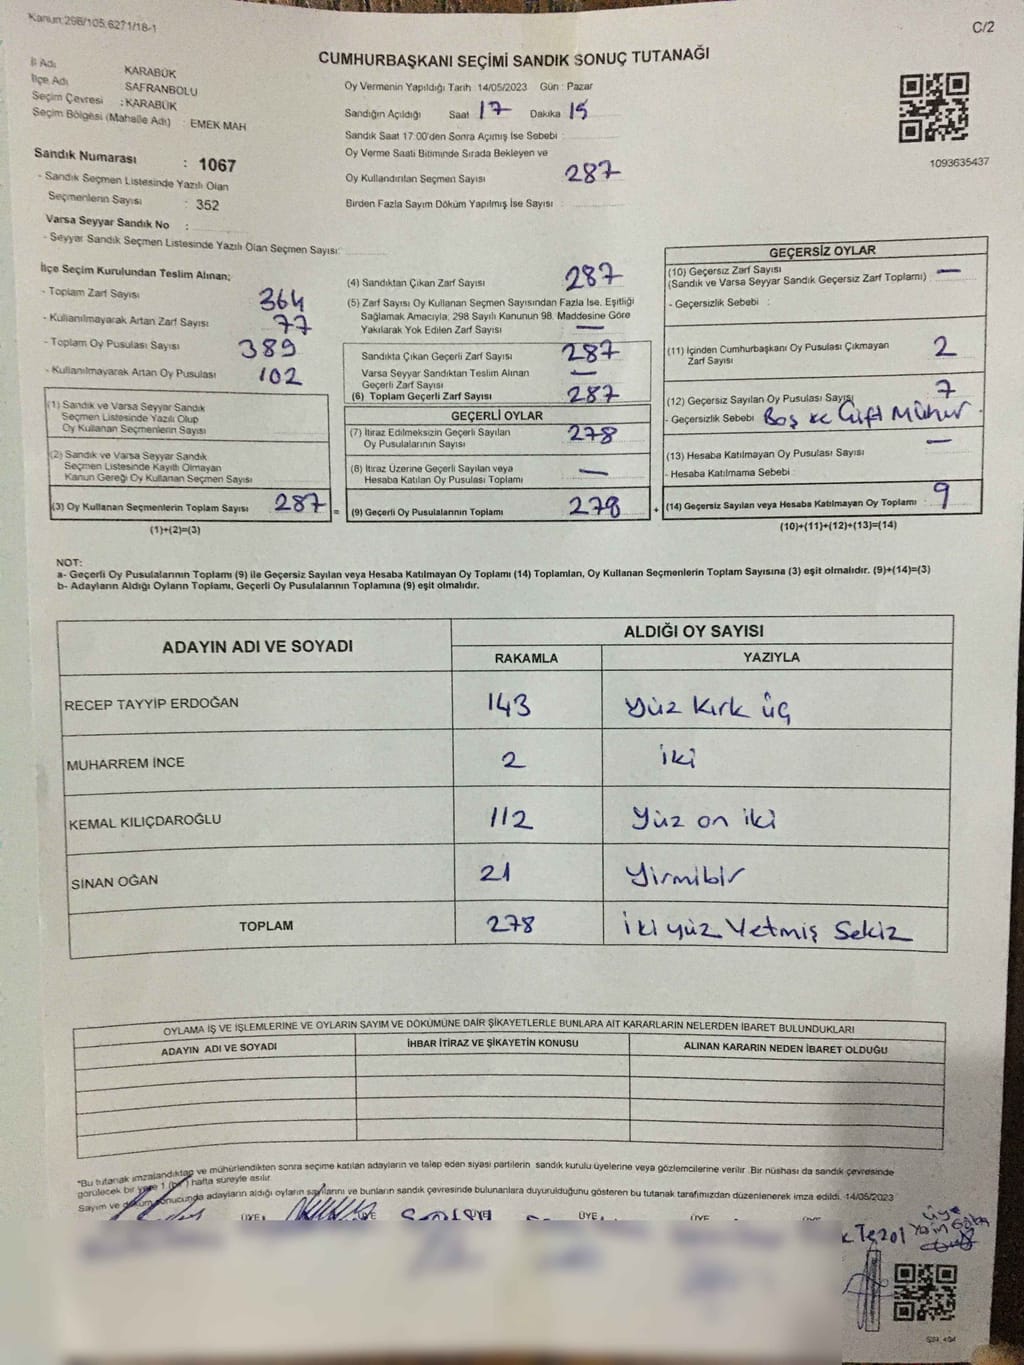 Kanun:298/105,6271/18-1
C/2
CUMHURBAŞKANI SEÇİMİ SANDIK SONUÇ TUTANAĞI
İl Adı KARABÜK
İlçe Adı SAFRANBOLU
Seçim Çevresi : KARABÜK
Seçim Bölgesi (Mahalle Adı) : EMEK MAH
Sandık Numarası : 1067
- Sandık Seçmen Listesinde Yazılı Olan
Seçmenlerin Sayısı : 352
Varsa Seyyar Sandık No :
- Seyyar Sandık Seçmen Listesinde Yazılı Olan Seçmen Sayısı:
Oy Vermenin Yapıldığı Tarih : 14/05/2023 Gün : Pazar
Sandığın Açıldığı Saat 17 Dakika 15
Sandık Saat 17:00'den Sonra Açımış İse Sebebi :
Oy Verme Saati Bitiminde Sırada Bekleyen ve
Oy Kullandırılan Seçmen Sayısı 287
Birden Fazla Sayım Döküm Yapılmış İse Sayısı :
1093635437
İlçe Seçim Kurulundan Teslim Alınan;
- Toplam Zarf Sayısı 364
- Kullanılmayarak Artan Zarf Sayısı 77
- Toplam Oy Pusulası Sayısı 389
- Kullanılmayarak Artan Oy Pusulası 102
(1) Sandık ve Varsa Seyyar Sandık
Seçmen Listesinde Yazılı Olup
Oy Kullanan Seçmenlerin Sayısı
(2) Sandık ve Varsa Seyyar Sandık
Seçmen Listesinde Kayıtlı Olmayan
Kanun Gereği Oy Kullanan Seçmen Sayısı
(3) Oy Kullanan Seçmenlerin Toplam Sayısı 287 =
(1)+(2)=(3)
(4) Sandıktan Çıkan Zarf Sayısı 287
(5) Zarf Sayısı Oy Kullanan Seçmen Sayısından Fazla İse, Eşitliği
Sağlamak Amacıyla, 298 Sayılı Kanunun 98. Maddesine Göre
Yakılarak Yok Edilen Zarf Sayısı —
Sandıkta Çıkan Geçerli Zarf Sayısı 287
Varsa Seyyar Sandıktan Teslim Alınan
Geçerli Zarf Sayısı —
(6) Toplam Geçerli Zarf Sayısı 287
GEÇERLİ OYLAR
(7) İtiraz Edilmeksizin Geçerli Sayılan
Oy Pusulalarının Sayısı 278
(8) İtiraz Üzerine Geçerli Sayılan veya
Hesaba Katılan Oy Pusulası Toplamı —
(9) Geçerli Oy Pusulalarının Toplamı 278 +
GEÇERSİZ OYLAR
(10) Geçersiz Zarf Sayısı —
(Sandık ve Varsa Seyyar Sandık Geçersiz Zarf Toplamı)
- Geçersizlik Sebebi :
(11) İçinden Cumhurbaşkanı Oy Pusulası Çıkmayan
Zarf Sayısı 2
(12) Geçersiz Sayılan Oy Pusulası Sayısı 7
- Geçersizlik Sebebi Boş ve Çift Mühür
(13) Hesaba Katılmayan Oy Pusulası Sayısı —
- Hesaba Katılmama Sebebi :
(14) Geçersiz Sayılan veya Hesaba Katılmayan Oy Toplamı 9
(10)+(11)+(12)+(13)=(14)
NOT:
a- Geçerli Oy Pusulalarının Toplamı (9) ile Geçersiz Sayılan veya Hesaba Katılmayan Oy Toplamı (14) Toplamları, Oy Kullanan Seçmenlerin Toplam Sayısına (3) eşit olmalıdır. (9)+(14)=(3)
b- Adayların Aldığı Oyların Toplamı, Geçerli Oy Pusulalarının Toplamına (9) eşit olmalıdır.
ADAYIN ADI VE SOYADI
ALDIĞI OY SAYISI
RAKAMLA YAZIYLA
RECEP TAYYİP ERDOĞAN 143 Yüz Kırk üç
MUHARREM İNCE 2 iki
KEMAL KILIÇDAROĞLU 112 Yüz on iki
SİNAN OĞAN 21 Yirmibir
TOPLAM 278 İki yüz Yetmiş Sekiz
OYLAMA İŞ VE İŞLEMLERİNE VE OYLARIN SAYIM VE DÖKÜMÜNE DAİR ŞİKAYETLERLE BUNLARA AİT KARARLARIN NELERDEN İBARET BULUNDUKLARI
ADAYIN ADI VE SOYADI İHBAR İTİRAZ VE ŞİKAYETİN KONUSU ALINAN KARARIN NEDEN İBARET OLDUĞU
*Bu tutanak imzalandıktan ve mühürlendikten sonra seçime katılan adayların ve talep eden siyasi partilerin sandık kurulu üyelerine veya gözlemcilerine verilir .Bir nüshası da sandık çevresinde
görülecek bir yere 1 (bir) hafta süreyle asılır
Sayım ve döküm sonucunda adayların aldığı oyların sayılarını ve bunların sandık çevresinde bulunanlara duyurulduğunu gösteren bu tutanak tarafımızdan düzenlenerek imza edildi. 14/05/2023
ÜYE ÜYE ÜYE ÜYE ÜYE ÜYE
üye